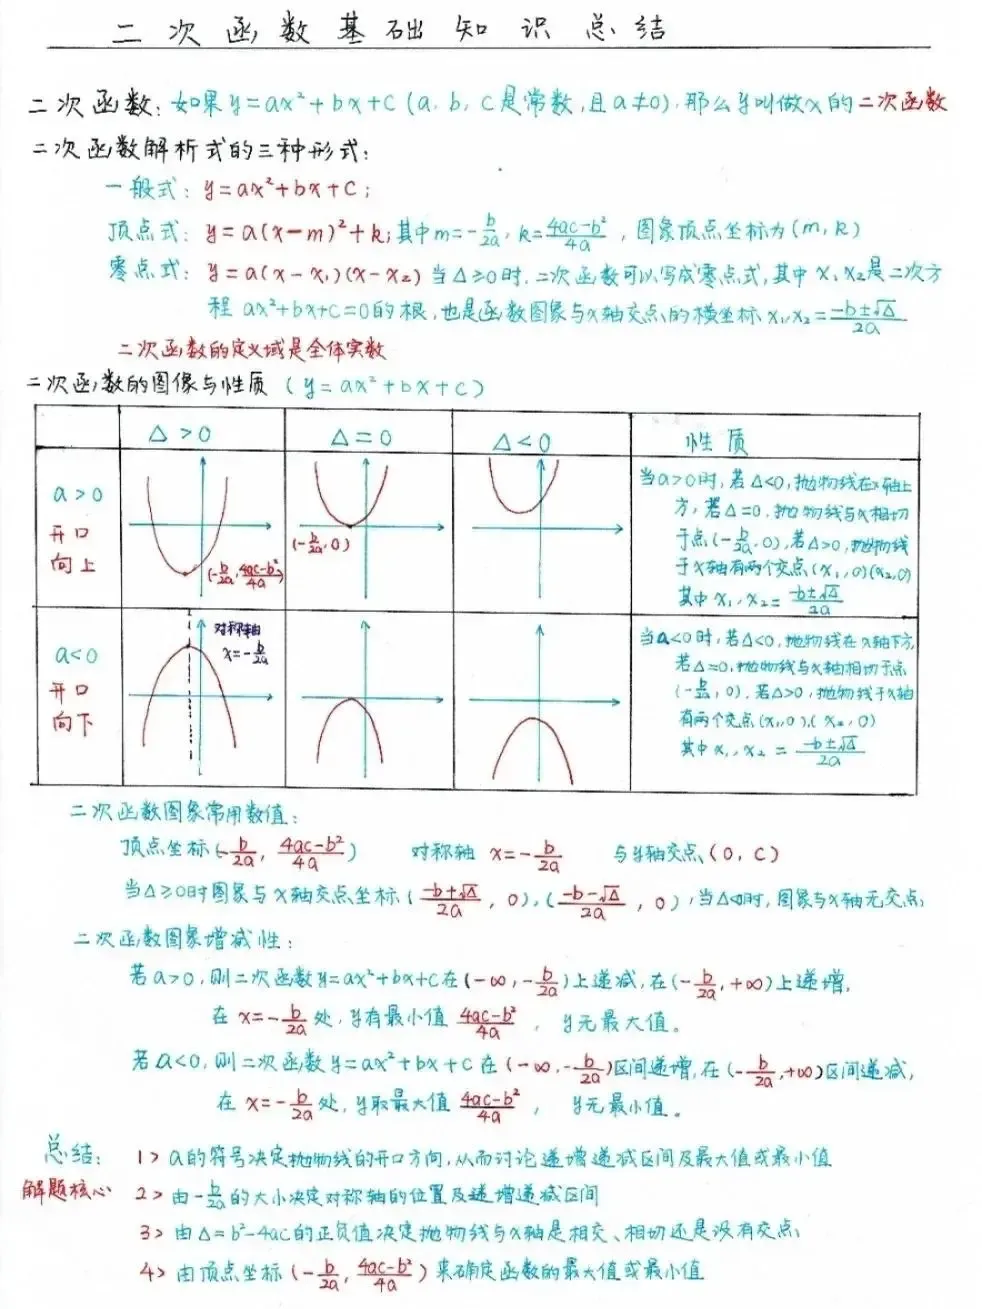 二次函数基础知识总结
二次函数：如果y=ax²+bx+c(a,b,c是常数,且a≠0),那么y叫做x的二次函数
二次函数解析式的三种形式：
一般式：y=ax²+bx+c;
顶点式：y=a(x-m)²+k;其中m=-b/2a, k=(4ac-b²)/4a, 图象顶点坐标为(m,k)
零点式：y=a(x-x₁)(x-x₂)当△≥0时,二次函数可以写成零点式,其中x₁x₂是二次方
程ax²+bx+c=0的根,也是函数图象与x轴交点的横坐标x₁,x₂=(-b±√△)/2a
二次函数的定义域是全体实数
二次函数的图像与性质(y=ax²+bx+c)
△>0 △=0 △<0 性质
a>0
开口
向上
(-b/2a, (4ac-b²)/4a)
(-b/2a,0)
当a>0时,若△<0,抛物线在x轴上
方,若△=0,抛物线与x相切
于点(-b/2a,0),若△>0,抛物线
于x轴有两个交点(x₁,0)(x₂,0)
其中x₁,x₂=(-b±√△)/2a
a<0
开口
向下
对称轴
x=-b/2a
当a<0时,若△<0,抛物线在x轴下方,
若△=0,抛物线与x轴相切于点
(-b/2a,0),若△>0,抛物线于x轴
有两个交点(x₁,0),(x₂,0)
其中x₁,x₂=(-b±√△)/2a
二次函数图象常用数值：
顶点坐标(-b/2a, (4ac-b²)/4a) 对称轴 x=-b/2a 与y轴交点(0,c)
当△≥0时图象与x轴交点坐标((-b+√△)/2a,0),((-b-√△)/2a,0),当△<0时,图象与x轴无交点
二次函数图象增减性：
若a>0,则二次函数y=ax²+bx+c在(-∞,-b/2a)上递减,在(-b/2a,+∞)上递增,
在x=-b/2a处,y有最小值(4ac-b²)/4a, y无最大值。
若a<0,则二次函数y=ax²+bx+c在(-∞,-b/2a)区间递增,在(-b/2a,+∞)区间递减,
在x=-b/2a处,y取最大值(4ac-b²)/4a, y无最小值。
总结： 1>a的符号决定抛物线的开口方向,从而讨论递增递减区间及最大值或最小值
解题核心 2>由-b/2a的大小决定对称轴的位置及递增递减区间
3>由△=b²-4ac的正负值决定抛物线与x轴是相交、相切还是没有交点
4>由顶点坐标(-b/2a, (4ac-b²)/4a)来确定函数的最大值或最小值